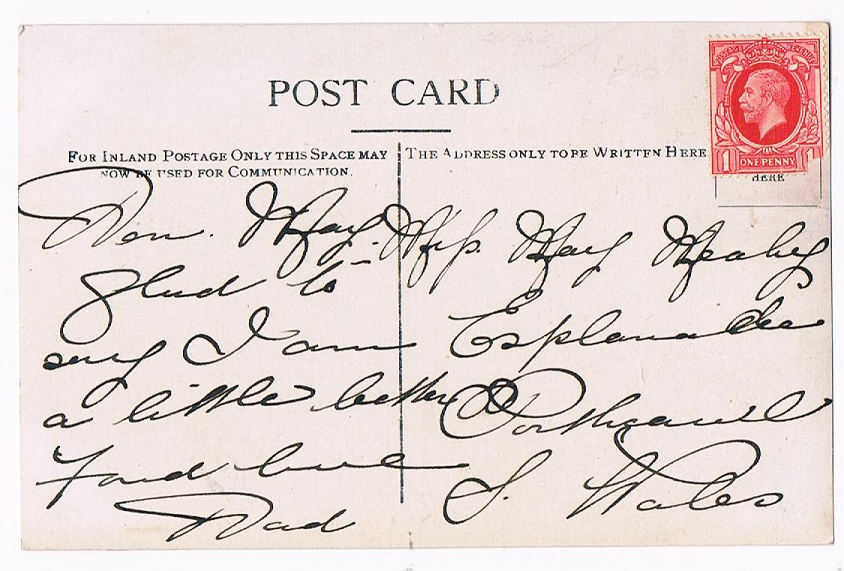 POST CARD
FOR INLAND POSTAGE ONLY THIS SPACE MAY
NOW BE USED FOR COMMUNICATION.
THE ADDRESS ONLY TO BE WRITTEN HERE
POSTAGE REVENUE
1 ONE PENNY 1
HERE
May.
Glad to
say I am
a little better
Fond love
Dad
Miss. May
Esplanade
Porthcawl
S. Wales